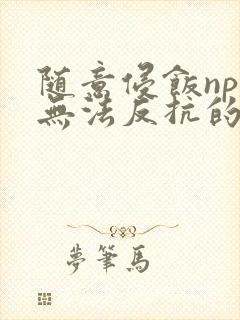 随意侵飯np
無法反抗的
夢筆馬